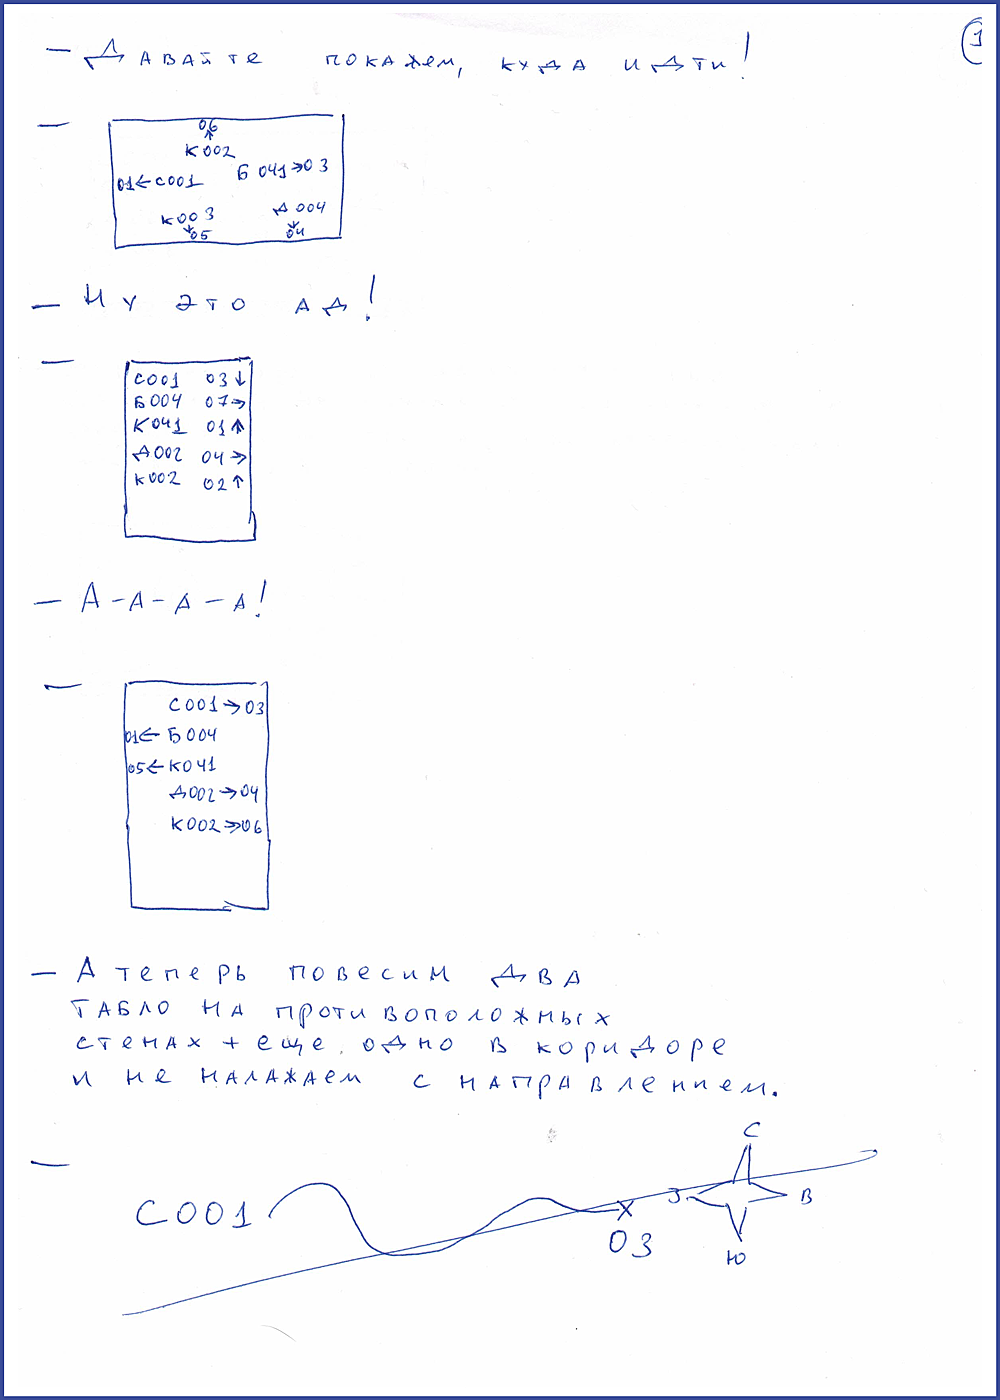 1
— Давайте покажем, куда идти!
—
06
↑
К002
Б 041→03
01←С001
К003
Д004
↓05
↓04
— Ну это ад!
—
С001 03↓
Б004 07→
К041 01↑
Д002 04→
К002 02↑
— А-а-а-а!
—
С001→03
01←Б004
05←К041
Д002→04
К002→06
— А теперь повесим два
табло на противоположных
стенах + еще одно в коридоре
и не налажаем с направлением.
—
С
С001
З
В
03
Ю